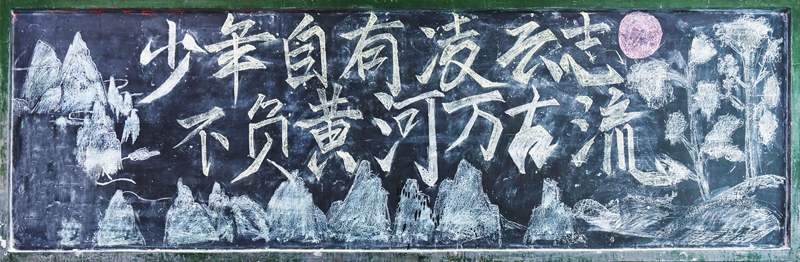 少年自有凌云志
不负黄河万古流